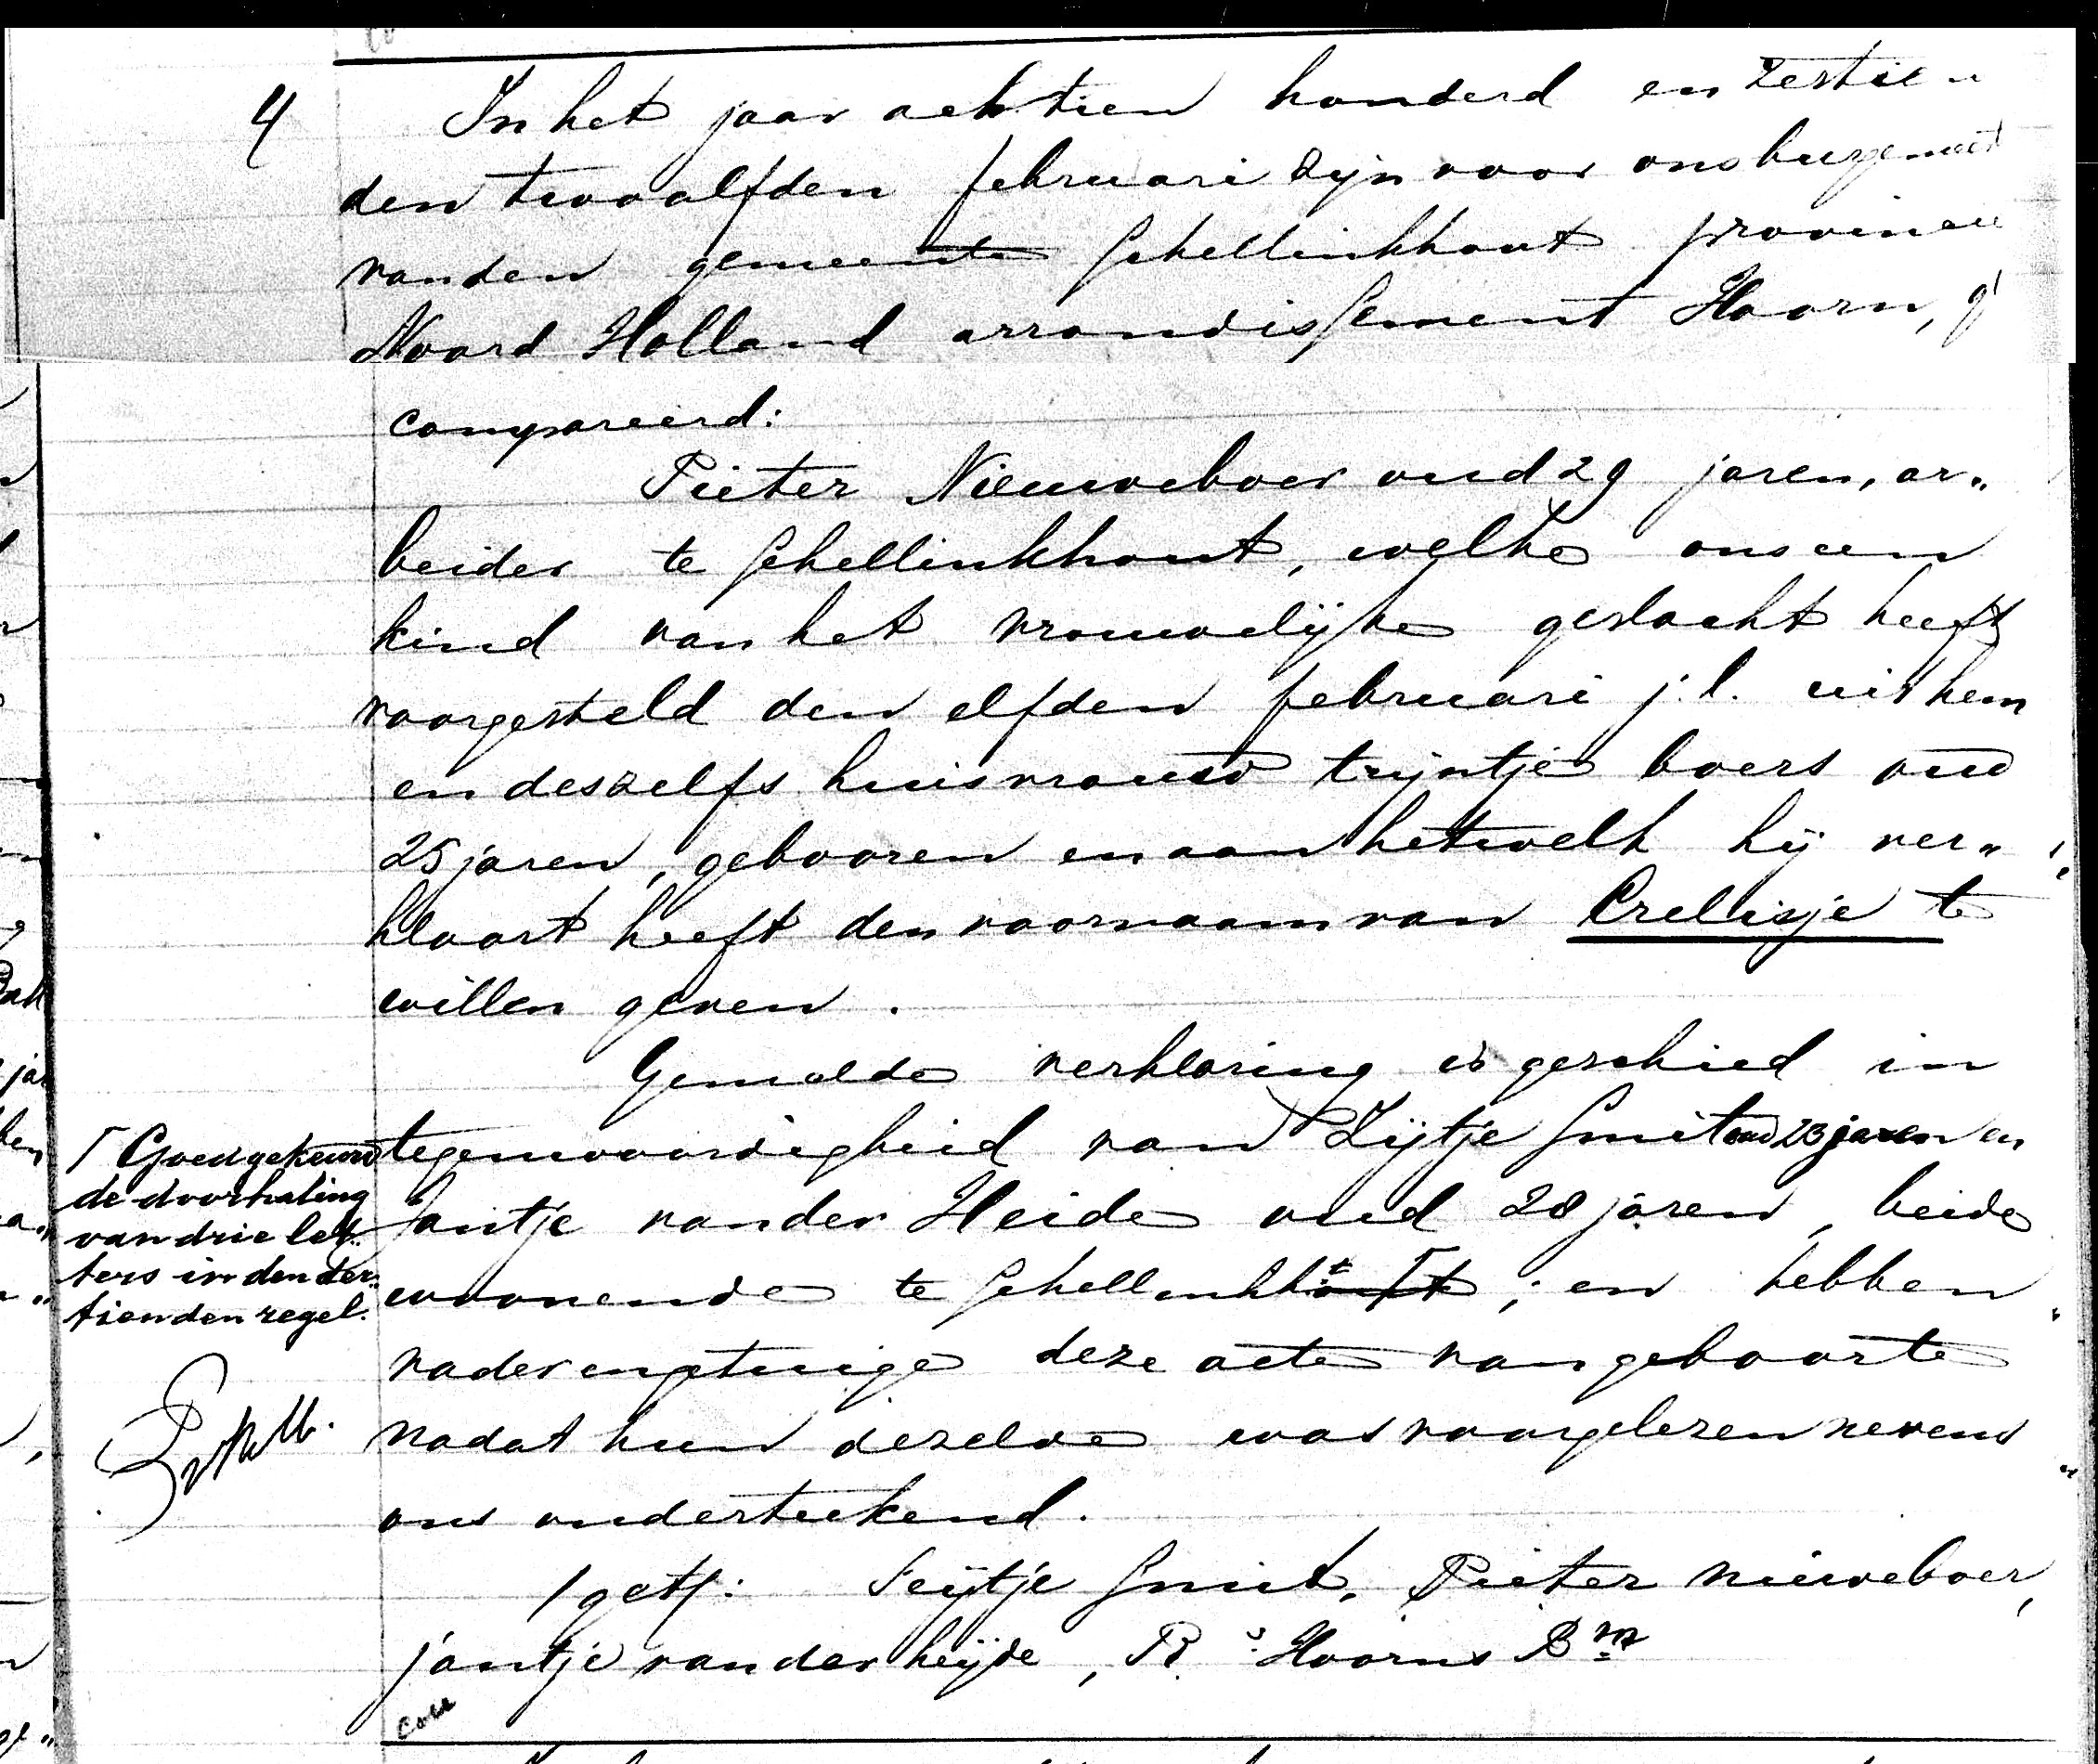 4 In het jaar achttien honderd en zestien
den twaalfden februari zijn voor ons burgemeest
van den gemeente Schellinkhout provincie
Noord Holland arrondissement Hoorn, g
compareerd:
Pieter Nieuweboer oud 29 jaren, ar„
beider te Schellinkhout, welke ons een
kind van het vrouwelijke geslacht heeft
voorgesteld den elfden februari j.l. uit hem
en deszelfs huisvrouw trijntje boers oud
25 jaren, gebooren en aan hetwelk hij ver„
klaart heeft den voornaam van Crelisje te
willen geven.
Gemelde verklaring is geschied in
tegenwoordigheid van Zijtje Smit oud 23 jaren en
Jantje van der Heide oud 28 jaren, beide
woonende te ; en hebben
vader en getuige deze acte van geboorte
nadat hun dezelve was voorgelezen nevens
ons onderteekend.
/get/: Seijtje Smit, Pieter nieuweboer,
jantje van der heijde, R. Hoorns Bm
Goedgekeurd
de doorhaling
van drie let„
ters in den der„
tienden regel.